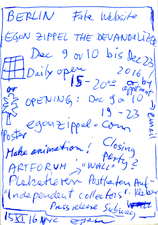 BERLIN Fate Website
EGON ZIPPEL THE DEVANDALIZER
Dec 9 or 10 bis Dec 23
Daily open 2016
15-20 or by appoint
OPENING: Dec 9 or 10
19-23
egonzippel.com
Poster
email
Make animation! Closing
party?
ARTFORUM: "WALL"
Plakatieren Postkarten Auf-
"independent collectors" kleber
WALL
Pass release Subway
15 XI 16 NYC